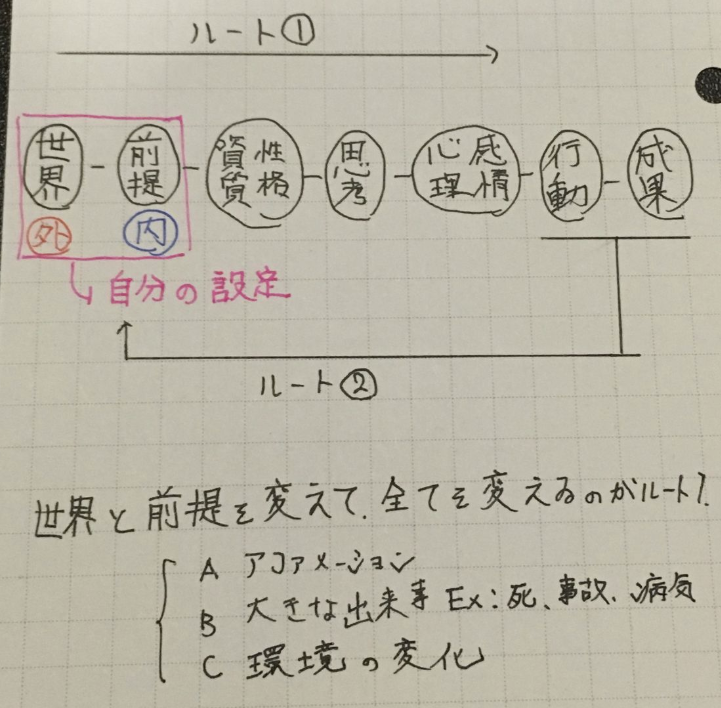 ルート①
世界 - 前提 - 資質 性格 - 思考 - 心理 感情 - 行動 - 成果
外 内
自分の設定
ルート②
世界と前提を変えて、全てを変えるのがルート1.
A アファメーション
B 大きな出来事 Ex:死、事故、病気
C 環境の変化